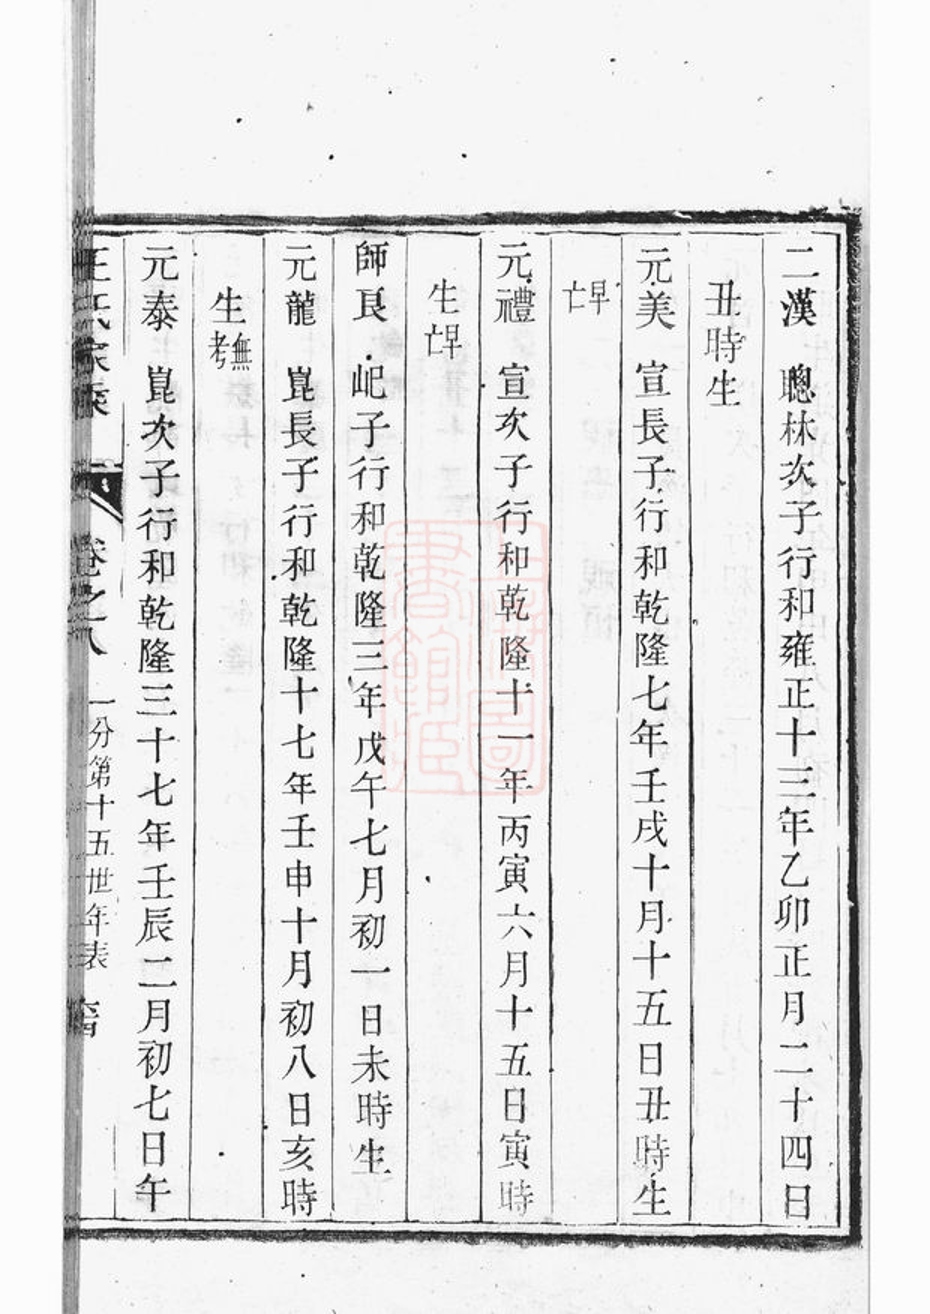 二漢　聰林次子行和雍正十三年乙卯正月二十四日
丑時生
元美　宣長子行和乾隆七年壬戌十月十五日丑時生
早亡
元禮　宣次子行和乾隆十一年丙寅六月十五日寅時
生早亡
師良　屺子行和乾隆三年戊午七月初一日未時生
元龍　崑長子行和乾隆十七年壬申十月初八日亥時
生無考
元泰　崑次子行和乾隆三十七年壬辰二月初七日午
王氏家乘　卷之八　一分第十五世年表